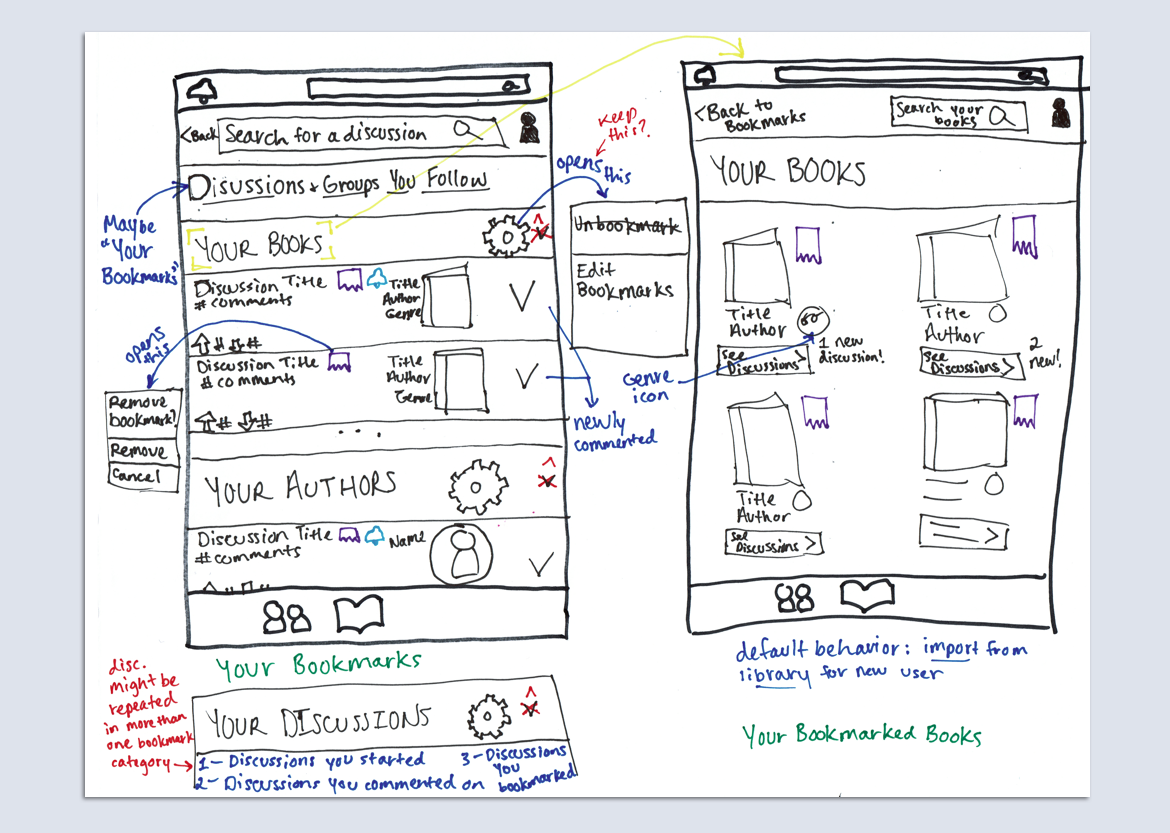 <Back
Search for a discussion
Disussions & Groups You Follow
Maybe
"Your
Bookmarks"
YOUR BOOKS
opens this
keep
this?
Unbookmark
Edit
Bookmarks
Discussion Title
# comments
Title
Author
Genre
# #
opens
this
Discussion Title
# comments
Title
Author
Genre
# #
Remove
bookmark?
Remove
Cancel
newly
commented
...
YOUR AUTHORS
Discussion Title
# comments
Name
Your Bookmarks
disc.
might be
repeated
in more than
one bookmark
category
YOUR DISCUSSIONS
1- Discussions you started
2- Discussions you commented on
3- Discussions
You
bookmarked
<Back to
Bookmarks
Search your
books
YOUR BOOKS
Title
Author
See
Discussions >
1 new
discussion!
Genre
icon
Title
Author
See
Discussions >
2
new!
Title
Author
See
Discussions >
default behavior: import from
library for new user
Your Bookmarked Books